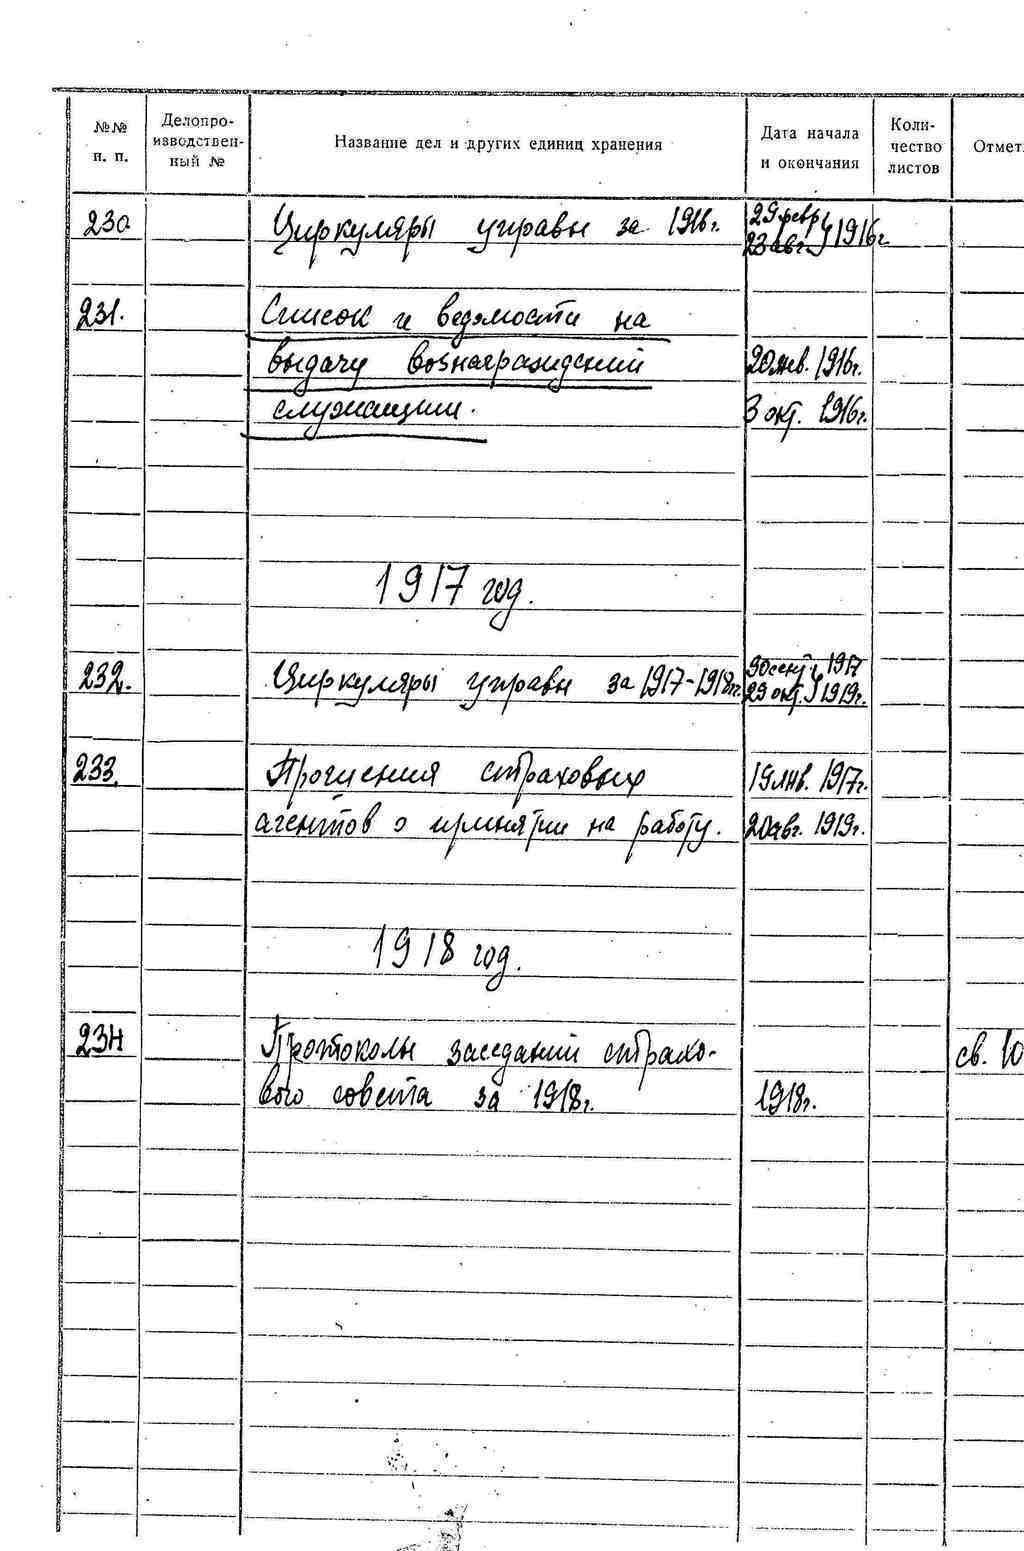 №№ п. п. Делопроизводственный № Название дел и других единиц хранения Дата начала и окончания Количество листов Отмет
230 Циркуляры управы за 1916г. 29 февр 23 авг. 1916г
231. Список и ведомости на
выдачу вознаграждений 20 янв. 1916г.
служащим. 3 окт. 1916г.
1917 год.
232. Циркуляры управы за 1917-1918гг. 30 сент. 1917 29 окт. 1919г.
233. Прошения страховых 19 янв. 1917г.
агентов о принятии на работу. 20 авг. 1919г.
1918 год.
234 Протоколы заседаний страхо- св. 10
вого совета за 1918г. 1918г.